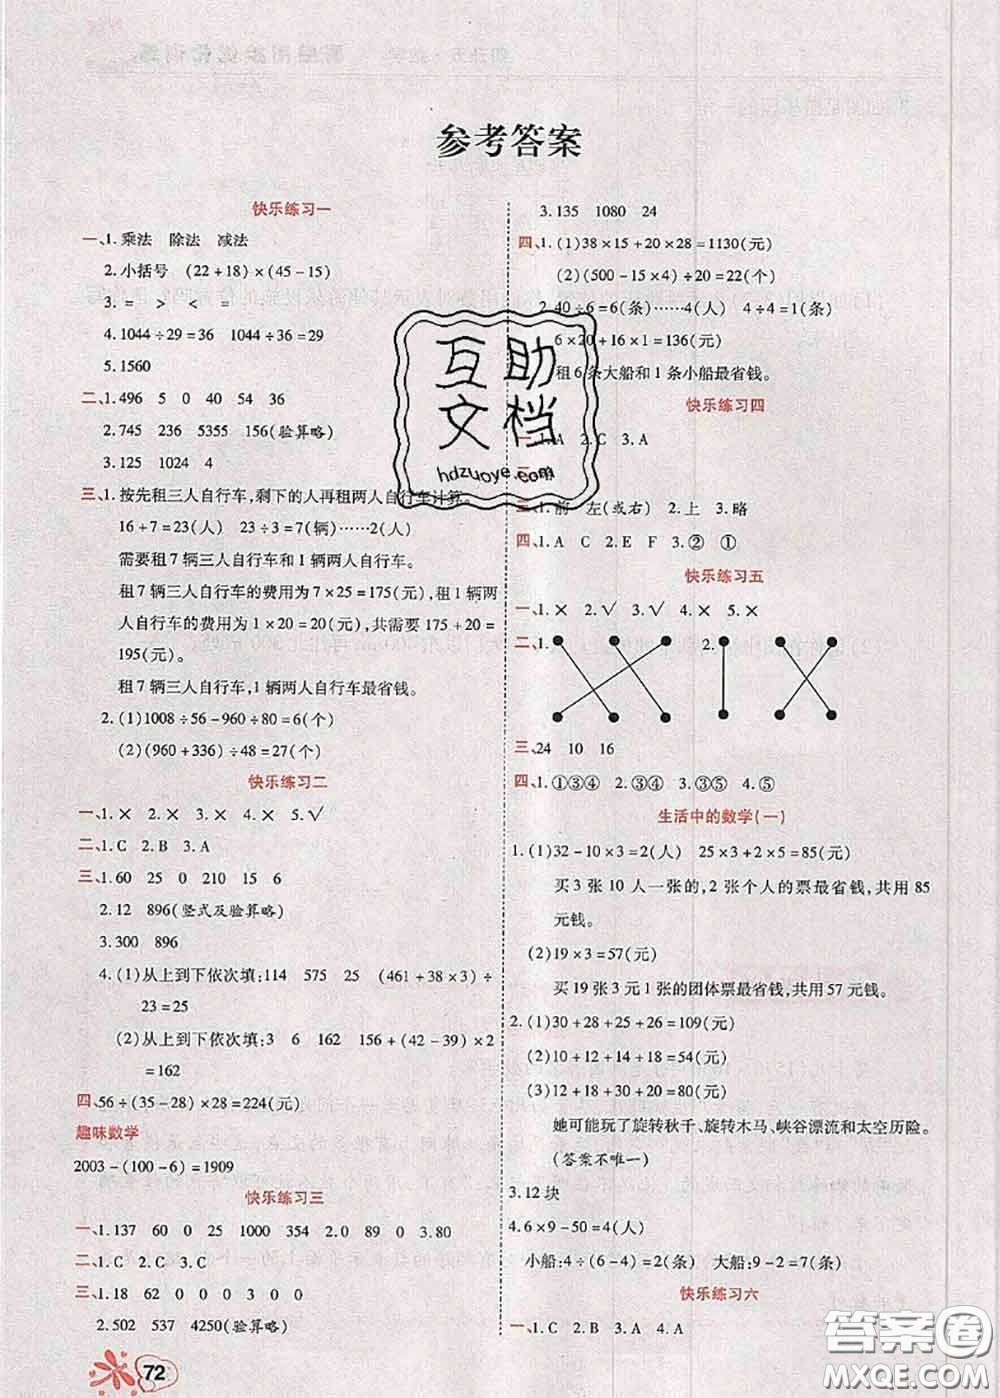 参考答案
快乐练习一
一、1.乘法 除法 减法
2.小括号 (22+18)×(45-15)
3. = > < =
4.1044÷29=36 1044÷36=29
5.1560
二、1.496 5 0 40 54 36
2.745 236 5355 156(验算略)
3.125 1024 4
三、1.按先租三人自行车,剩下的人再租两人自行车计算。
16+7=23(人) 23÷3=7(辆)……2(人)
需要租7辆三人自行车和1辆两人自行车。
租7辆三人自行车的费用为7×25=175(元),租1辆两人
自行车的费用为1×20=20(元),共需要175+20=
195(元)。
租7辆三人自行车,1辆两人自行车最省钱。
2.(1)1008÷56-960÷80=6(个)
(2)(960+336)÷48=27(个)
快乐练习二
一、1.× 2.× 3.× 4.× 5.√
二、1.C 2.B 3.A
三、1.60 25 0 210 15 6
2.12 896(竖式及验算略)
3.300 896
4.(1)从上到下依次填:114 575 25 (461+38×3)÷
23=25
(2)从上到下依次填:3 6 162 156+(42-39)×2
=162
四、56÷(35-28)×28=224(元)
趣味数学
2003-(100-6)=1909
快乐练习三
一、1.137 60 0 25 1000 354 2.0 89 0 3.80
二、1.C 2.C 3.C
三、1.18 62 0 0 0 3 0 0
2.502 537 4250(验算略)
72
3.135 1080 24
四、1.(1)38×15+20×28=1130(元)
(2)(500-15×4)÷20=22(个)
2.40÷6=6(条)……4(人) 4÷4=1(条)
6×20+16×1=136(元)
租6条大船和1条小船最省钱。
快乐练习四
一、1.A 2.C 3.A
二、
三、1.前 左(或右) 2.上 3.略
四、1.A C 2.E F 3.② ①
快乐练习五
一、1.× 2.√ 3.√ 4.× 5.×
二、1. 2.
三、24 10 16
四、1.①③④ 2.④ 3.③⑤ 4.⑤
生活中的数学(一)
1.(1)32-10×3=2(人) 25×3+2×5=85(元)
买3张10人一张的,2张个人的票最省钱,共用85
元钱。
(2)19×3=57(元)
买19张3元1张的团体票最省钱,共用57元钱。
2.(1)30+28+25+26=109(元)
(2)10+12+14+18=54(元)
(3)12+18+30+20=80(元)
她可能玩了旋转秋千、旋转木马、峡谷漂流和太空历险。
(答案不唯一)
3.12块
4.6×9-50=4(人)
小船:4÷(6-4)=2(条) 大船:9-2=7(条)
快乐练习六
一、1.C 2.B 3.A 4.A
互助
文档
hdzuoye.com
答案圈
MXQE.COM